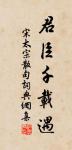 君臣千載遇
宋太宗散句詞典網集